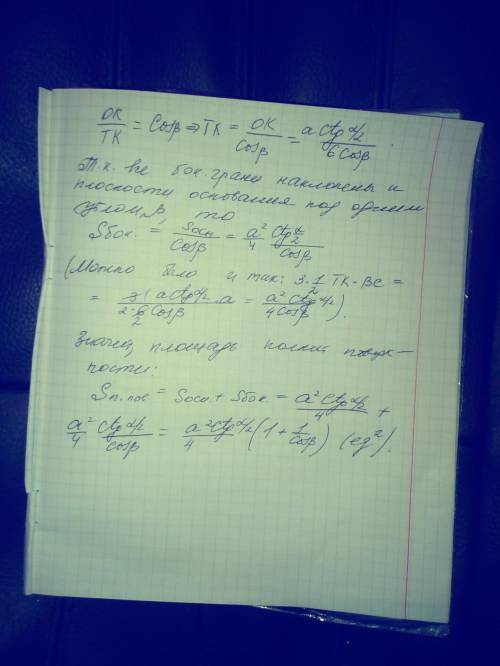 OK/TK = Cosβ ⇒ TK = OK/Cosβ = a Ctg α/2 / 6 Cosβ
Т.к. все бок. грани наклонены к
плоскости основания под одним
углом β, то
Sбок. = Sосн/Cosβ = a²/4 Ctg α/2 / Cosβ
(Можно было и так: 3·1/2 TK·BC =
= 3·1/2 · a Ctg α/2 / 6 Cosβ · a = a² Ctg α/2 / 4 Cosβ).
Значит, площадь полной поверх-
ности:
Sп.пов = Sосн + Sбок = a² Ctg α/2 / 4 +
a²/4 Ctg α/2 / Cosβ = a² Ctg α/2 / 4 (1 + 1/Cosβ) (ед²).